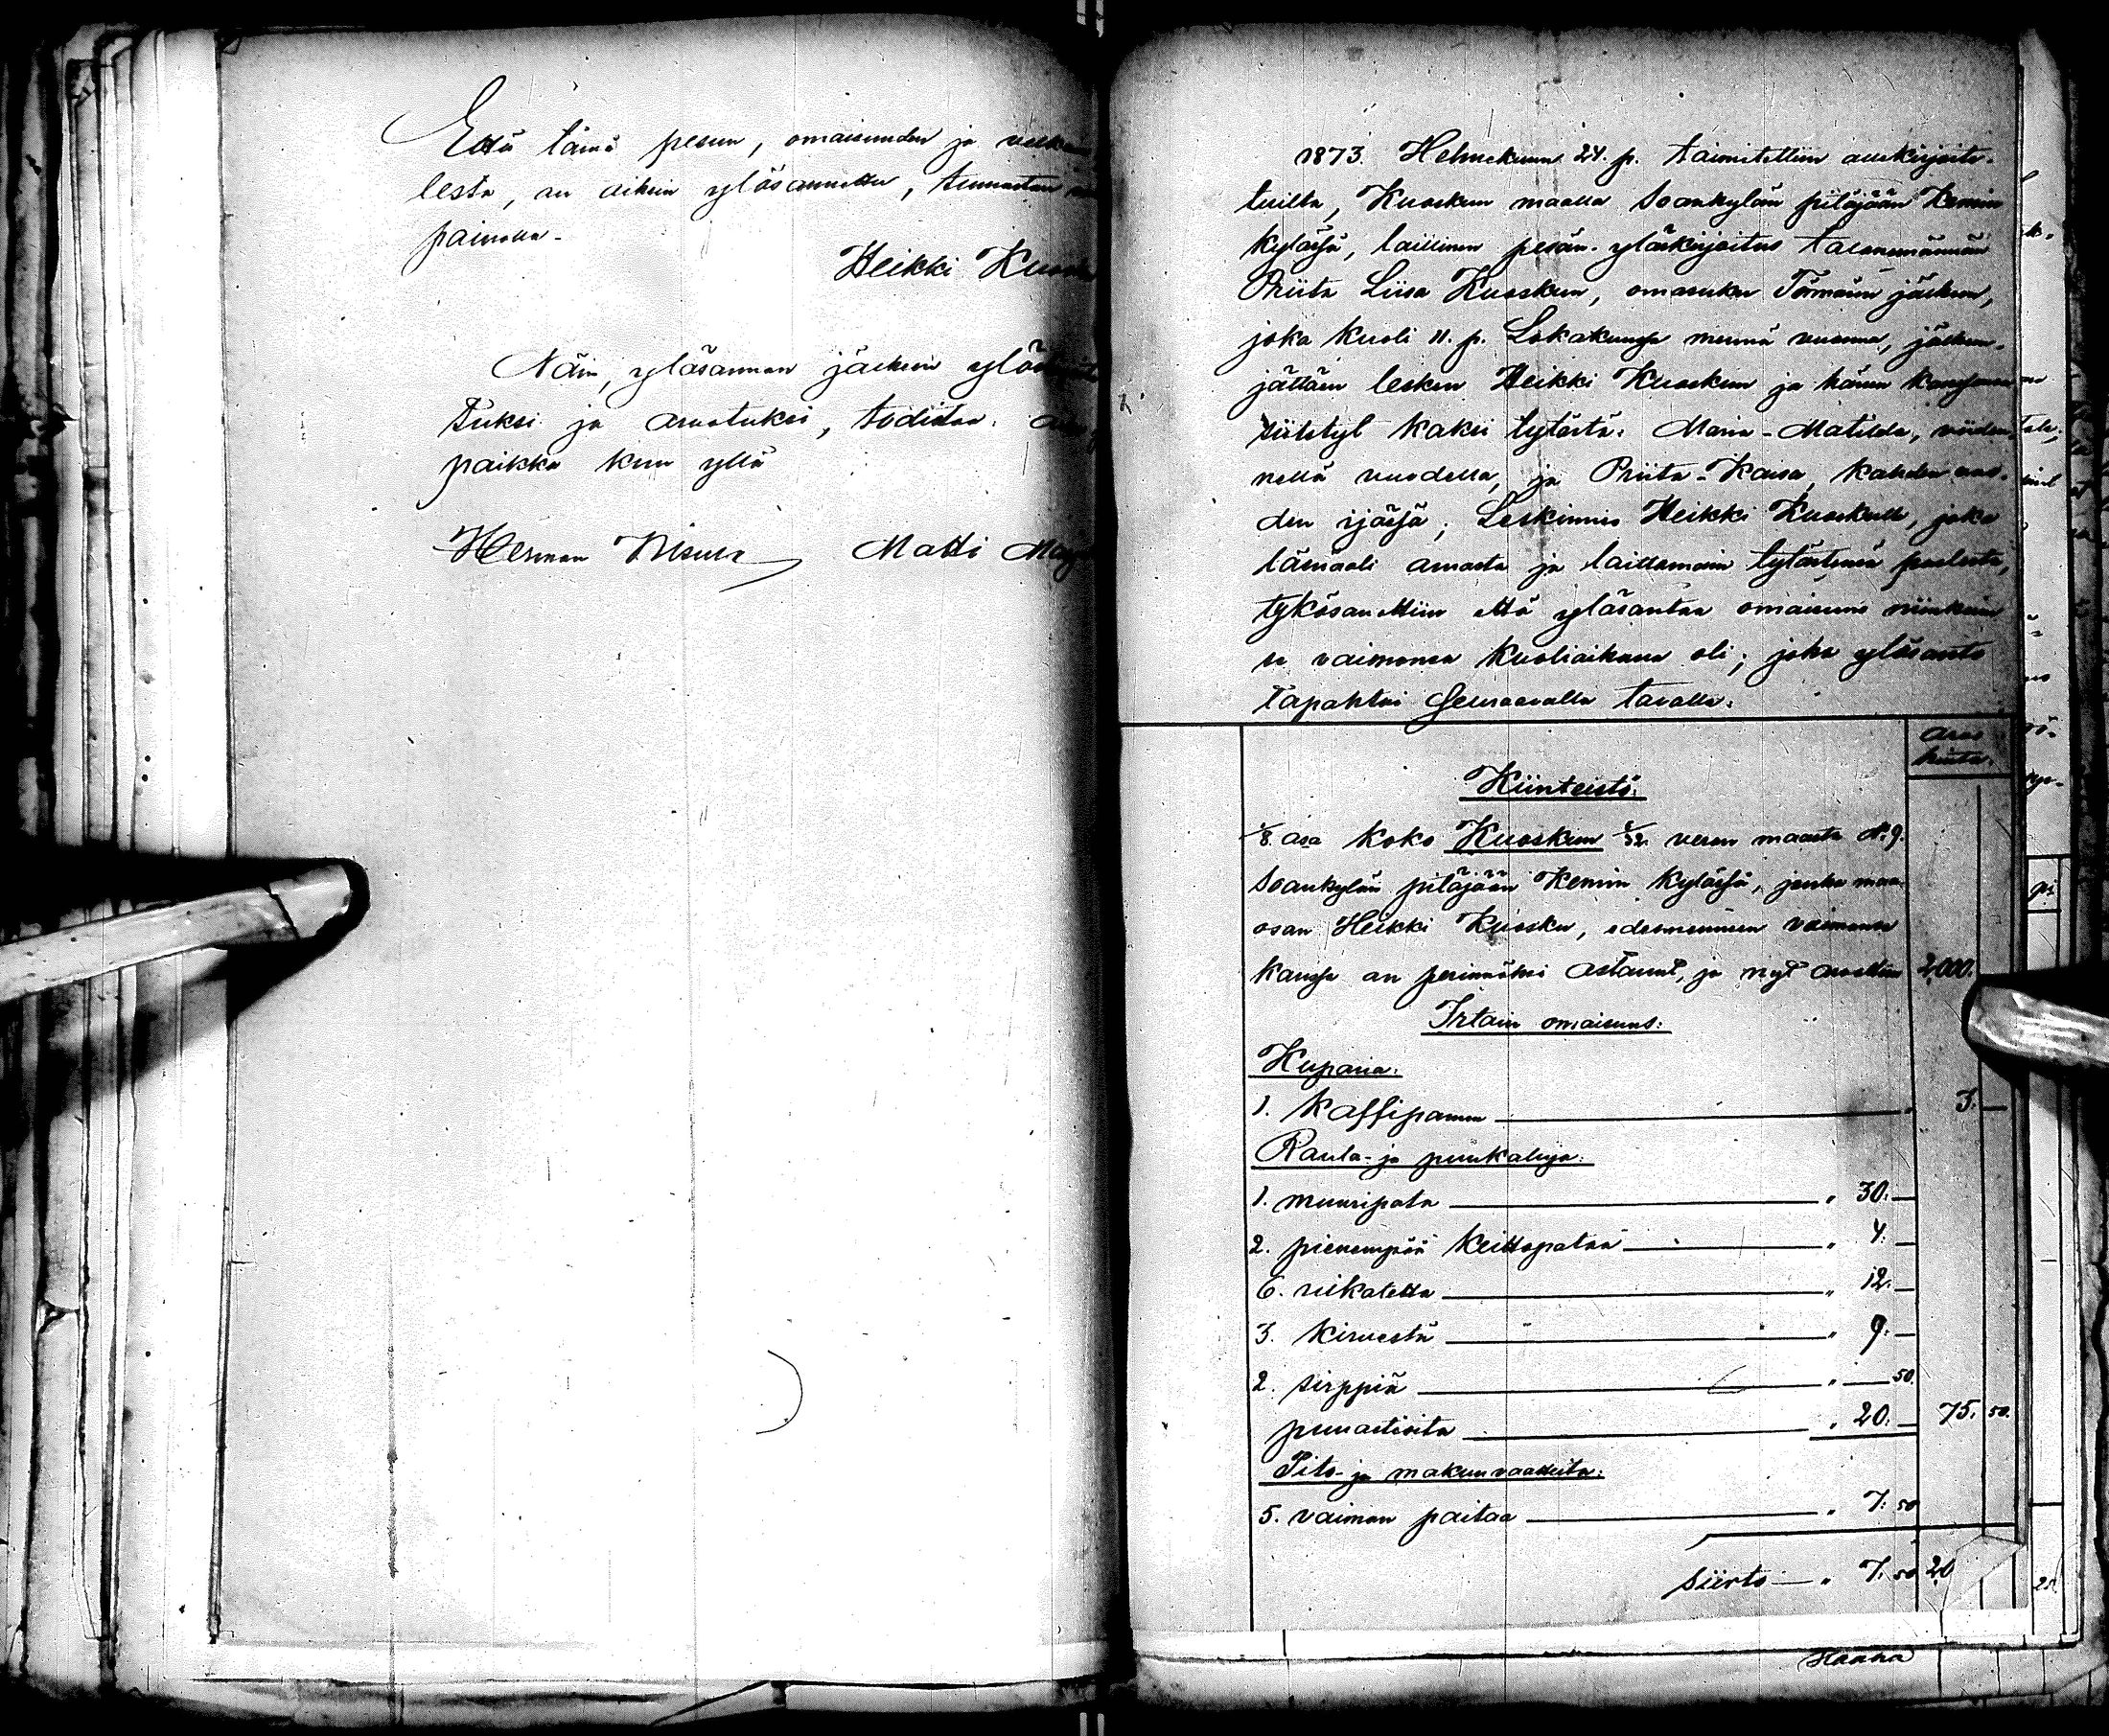 Että tämä pesän, omaisuuden ja
lesta, on oikein ylösannettu, tunnustan
painolla.
Heikki
Näin, ylösannon jälkeen
tuksi ja arvatuksi, todistaa.
paikka kuin yllä
Herman Matti
1873. Helmekuun 24. p. toimitettiin allekirjoite-
tuilta, Kuoskun maalla Soankylän pitäjään Kemin
kylässä, laillinen pesän-yläskirjoitus talonemännän
Priita Liisa Kuoskun, omasukua Törmäsen jälkeen,
joka kuoli 11. p. Lokakuussa mennä vuonna, jälkeen-
jättäen lesken Heikki Kuoskun ja hänen kanssansa
siitetyt kaksi tytärtä: Maria-Matilda, viiden-
nellä vuodella, ja Priita-Kaisa, kahden vuo-
den ijässä; Leskimies Heikki Kuoskulle, joka
läsnäoli omasta ja laittomain tytärtensä puolesta,
tykösanottiin että ylösantaa omaisuus niinkuin
se vaimonsa kuoliaikana oli; joka ylösanto
tapahtui seuraavalla tavalla:
Arvo
hinta.
Kiinteistö:
1/8. asa koko Kuoskun veron maasta N:9.
Soankylän pitäjään Kemin kylässä, jonka maa-
osan Heikki Kuosku, edesmenneen vaimonsa
kanssa on perinnöksi ostanut, ja nyt arvattiin 2,000.
Irtain omaisuus:
Kuparia:
1. Kaffipannu — " 3. —
Rauta- ja puukaluja:
1. muuripata — " 30. —
2. pienempää keittopataa — " 4. —
6. viikatetta — " 12. —
3. kirvestä — " 9. —
2. sirppiä — " — 50.
puuastioita — " 20. — 75. 50.
Pito- ja makuuvaatteita:
5. vaimon paitaa — " 7. 50
siirto — " 7. 50 20